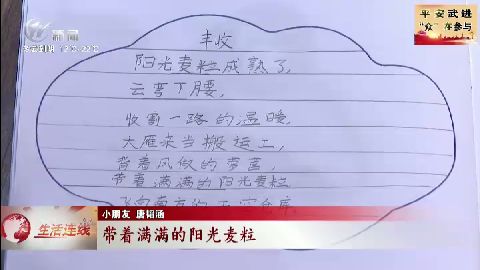 新闻
平安武进
“众”在参与
丰收
阳光麦粒成熟了,
云弯下腰,
收割一路的温暖,
大雁来当搬运工,
背着风做的
带着满满的阳光麦粒
小朋友 唐韬涵
生活连线
带着满满的阳光麦粒